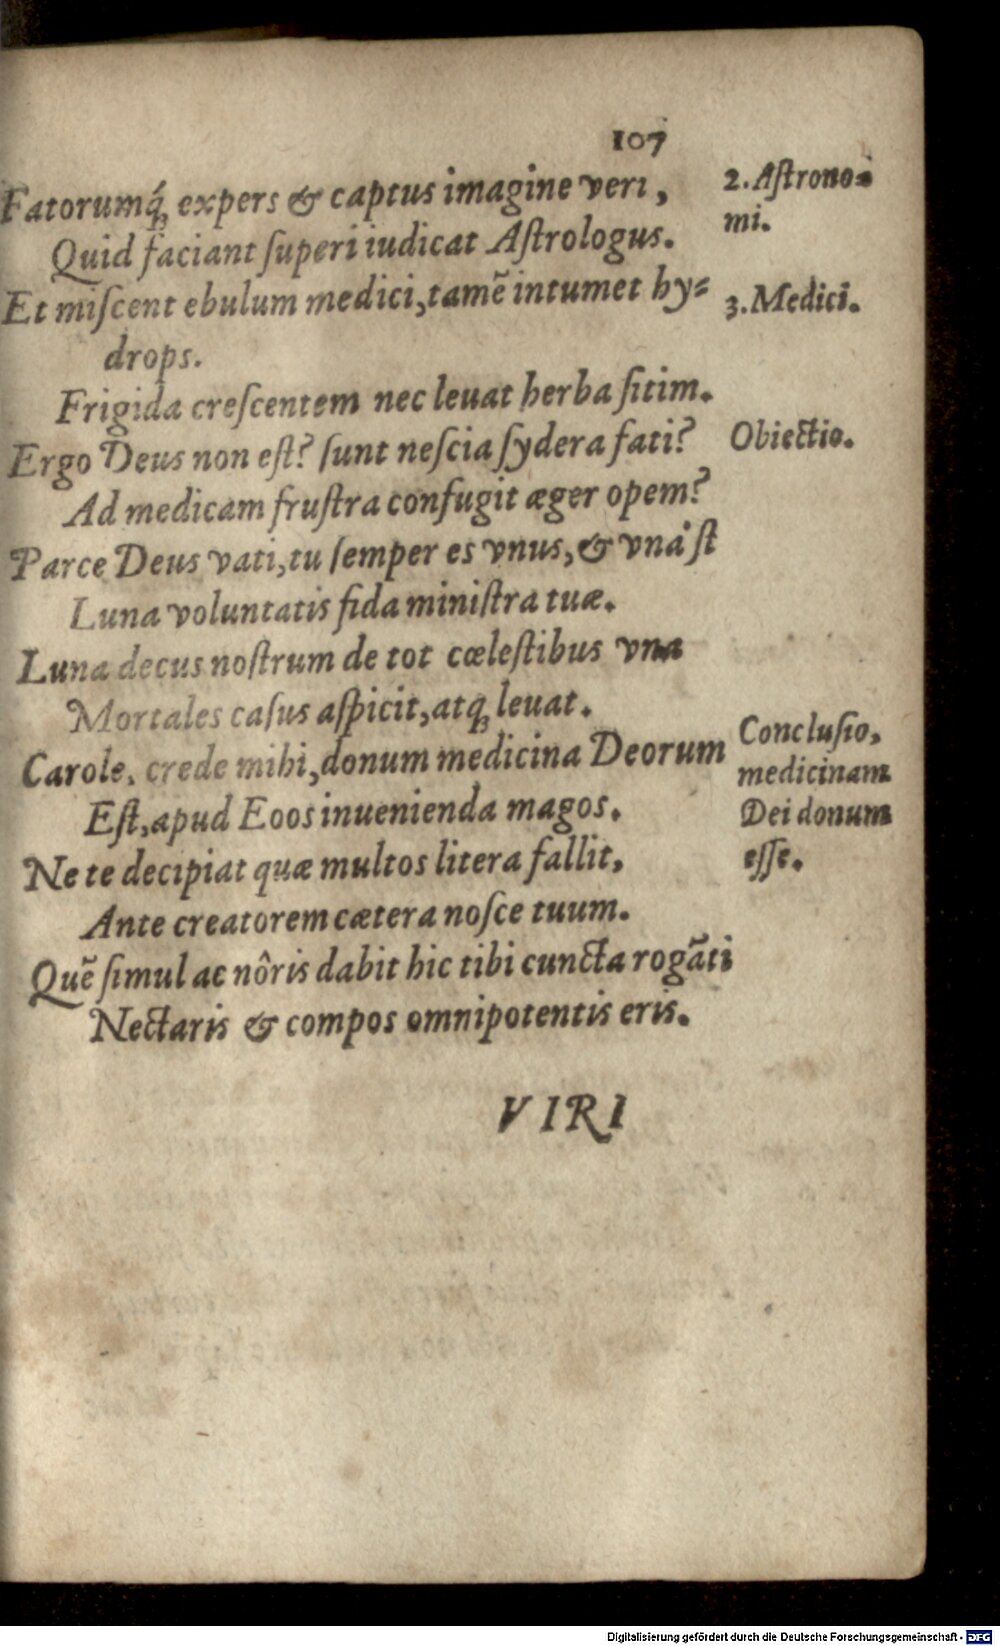 107
Fatorumq́; expers & captus imagine veri,
2. Aſtrono-
mi.
Quid faciant ſuperi iudicat Aſtrologus.
Et miſcent ebulum medici, tamẽ intumet hy=
drops.
3. Medici.
Frigida creſcentem nec leuat herba ſitim.
Ergo Deus non eſt? ſunt neſcia ſydera fati?
Obiectio.
Ad medicam fruſtra confugit æger opem?
Parce Deus vati, tu ſemper es vnus, & vna'ſt
Luna voluntatis fida miniſtra tuæ.
Luna decus noſtrum de tot cœleſtibus vna
Mortales caſus aſpicit, atq; leuat.
Carole, crede mihi, donum medicina Deorum
Eſt, apud Eoos inuenienda magos.
Concluſio,
medicinam
Dei donum
eſſe.
Ne te decipiat quæ multos litera fallit,
Ante creatorem cætera noſce tuum.
Quẽ ſimul ac nôris dabit hic tibi cuncta rogãti
Nectaris & compos omnipotentis eris.
VIRI
Digitalisierung gefördert durch die Deutsche Forschungsgemeinschaft - DFG